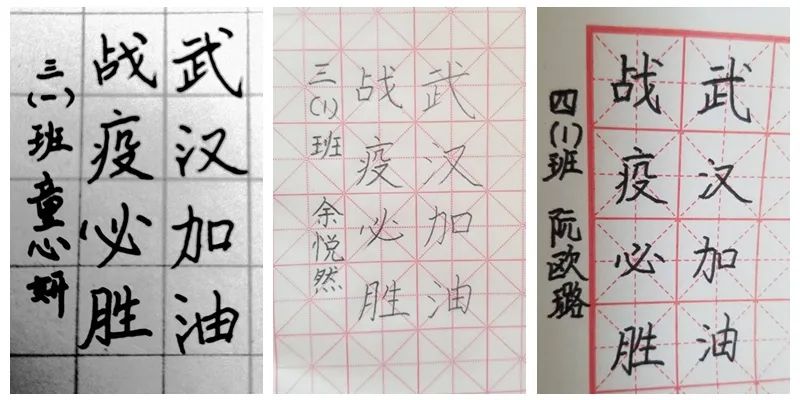 武汉加油
战疫必胜
三(一)班 童心妍
武汉加油
战疫必胜
三(1)班 余悦然
武汉加油
战疫必胜
四(1)班 阮欧璐